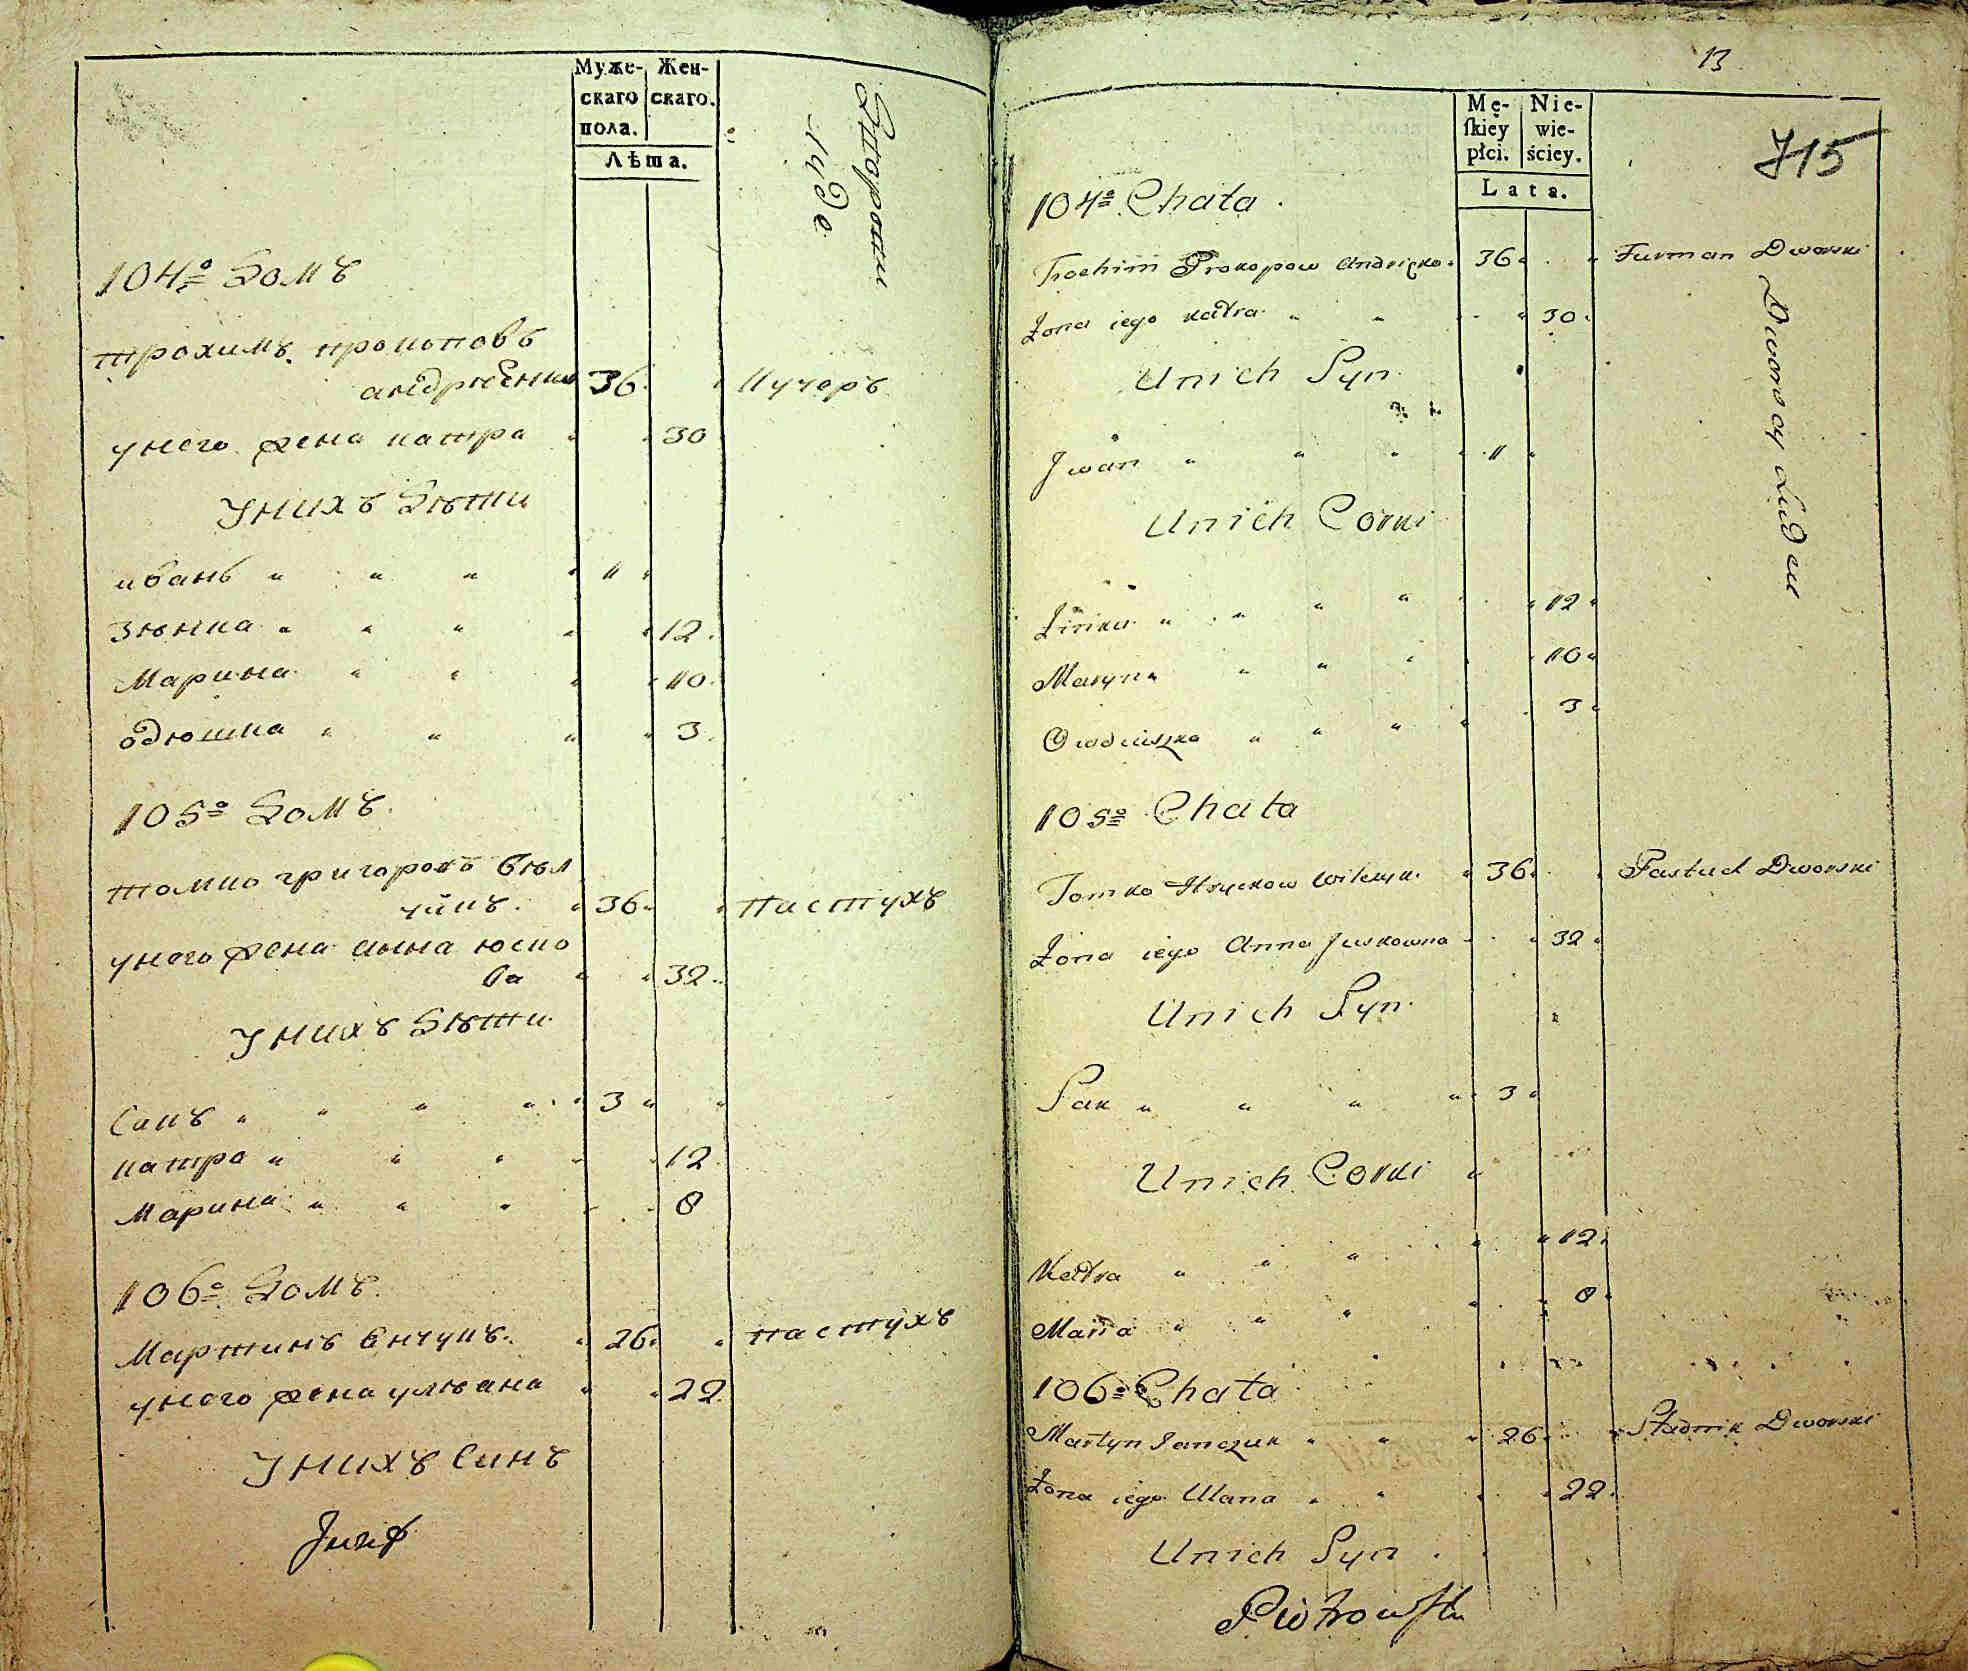 Муже- Жен-
скаго скаго.
пола.
Лѣта.
104º Домъ
трохимъ прокоповъ
36 Кучеръ
унего жена катра " " 30
Унихъ Дѣти
иванъ " " " " 11 "
зѣнка " " " " " 12
Марина " " " " 10
одюшка " " " " 3
105º Домъ
томко григоровъ вѣл
чукъ " 36 " " пастухъ
унего жена анна юско
ва " " 32
Унихъ Дѣти
Сакъ " " " " 3 " "
катра " " " " " 12
Марина " " " " 8
106º Домъ
Мартинъ " 26 " " пастухъ
унего жена уляна " " 22
Унихъ Синъ
13
Mę- Nie-
ſkiey wie-
płci. ściey.
Lata.
715
104º Chata
Trochim Prokopow 36 " " Furman Dworski
Żona iego Katra " " " 30 "
Dworscy Ludzie
Unich Syn
Iwan " " " " 11 "
Unich Corki
Zinka " " " " " 12 "
Maryna " " " " 10 "
" " " " 3 "
105º Chata
Tomko Hryckow " 36 " " Pastuch Dworski
Żona iego Anna Juskowna " " 32 "
Unich Syn
Sak " " " " 3 "
Unich Corki "
Katra " " " " " 12 "
Maria " " " " " 8 "
106º Chata
Martyn Janczuk " " " 26 " " Stadnik Dworski
Żona iego Ulana " " " " 22 "
Unich Syn